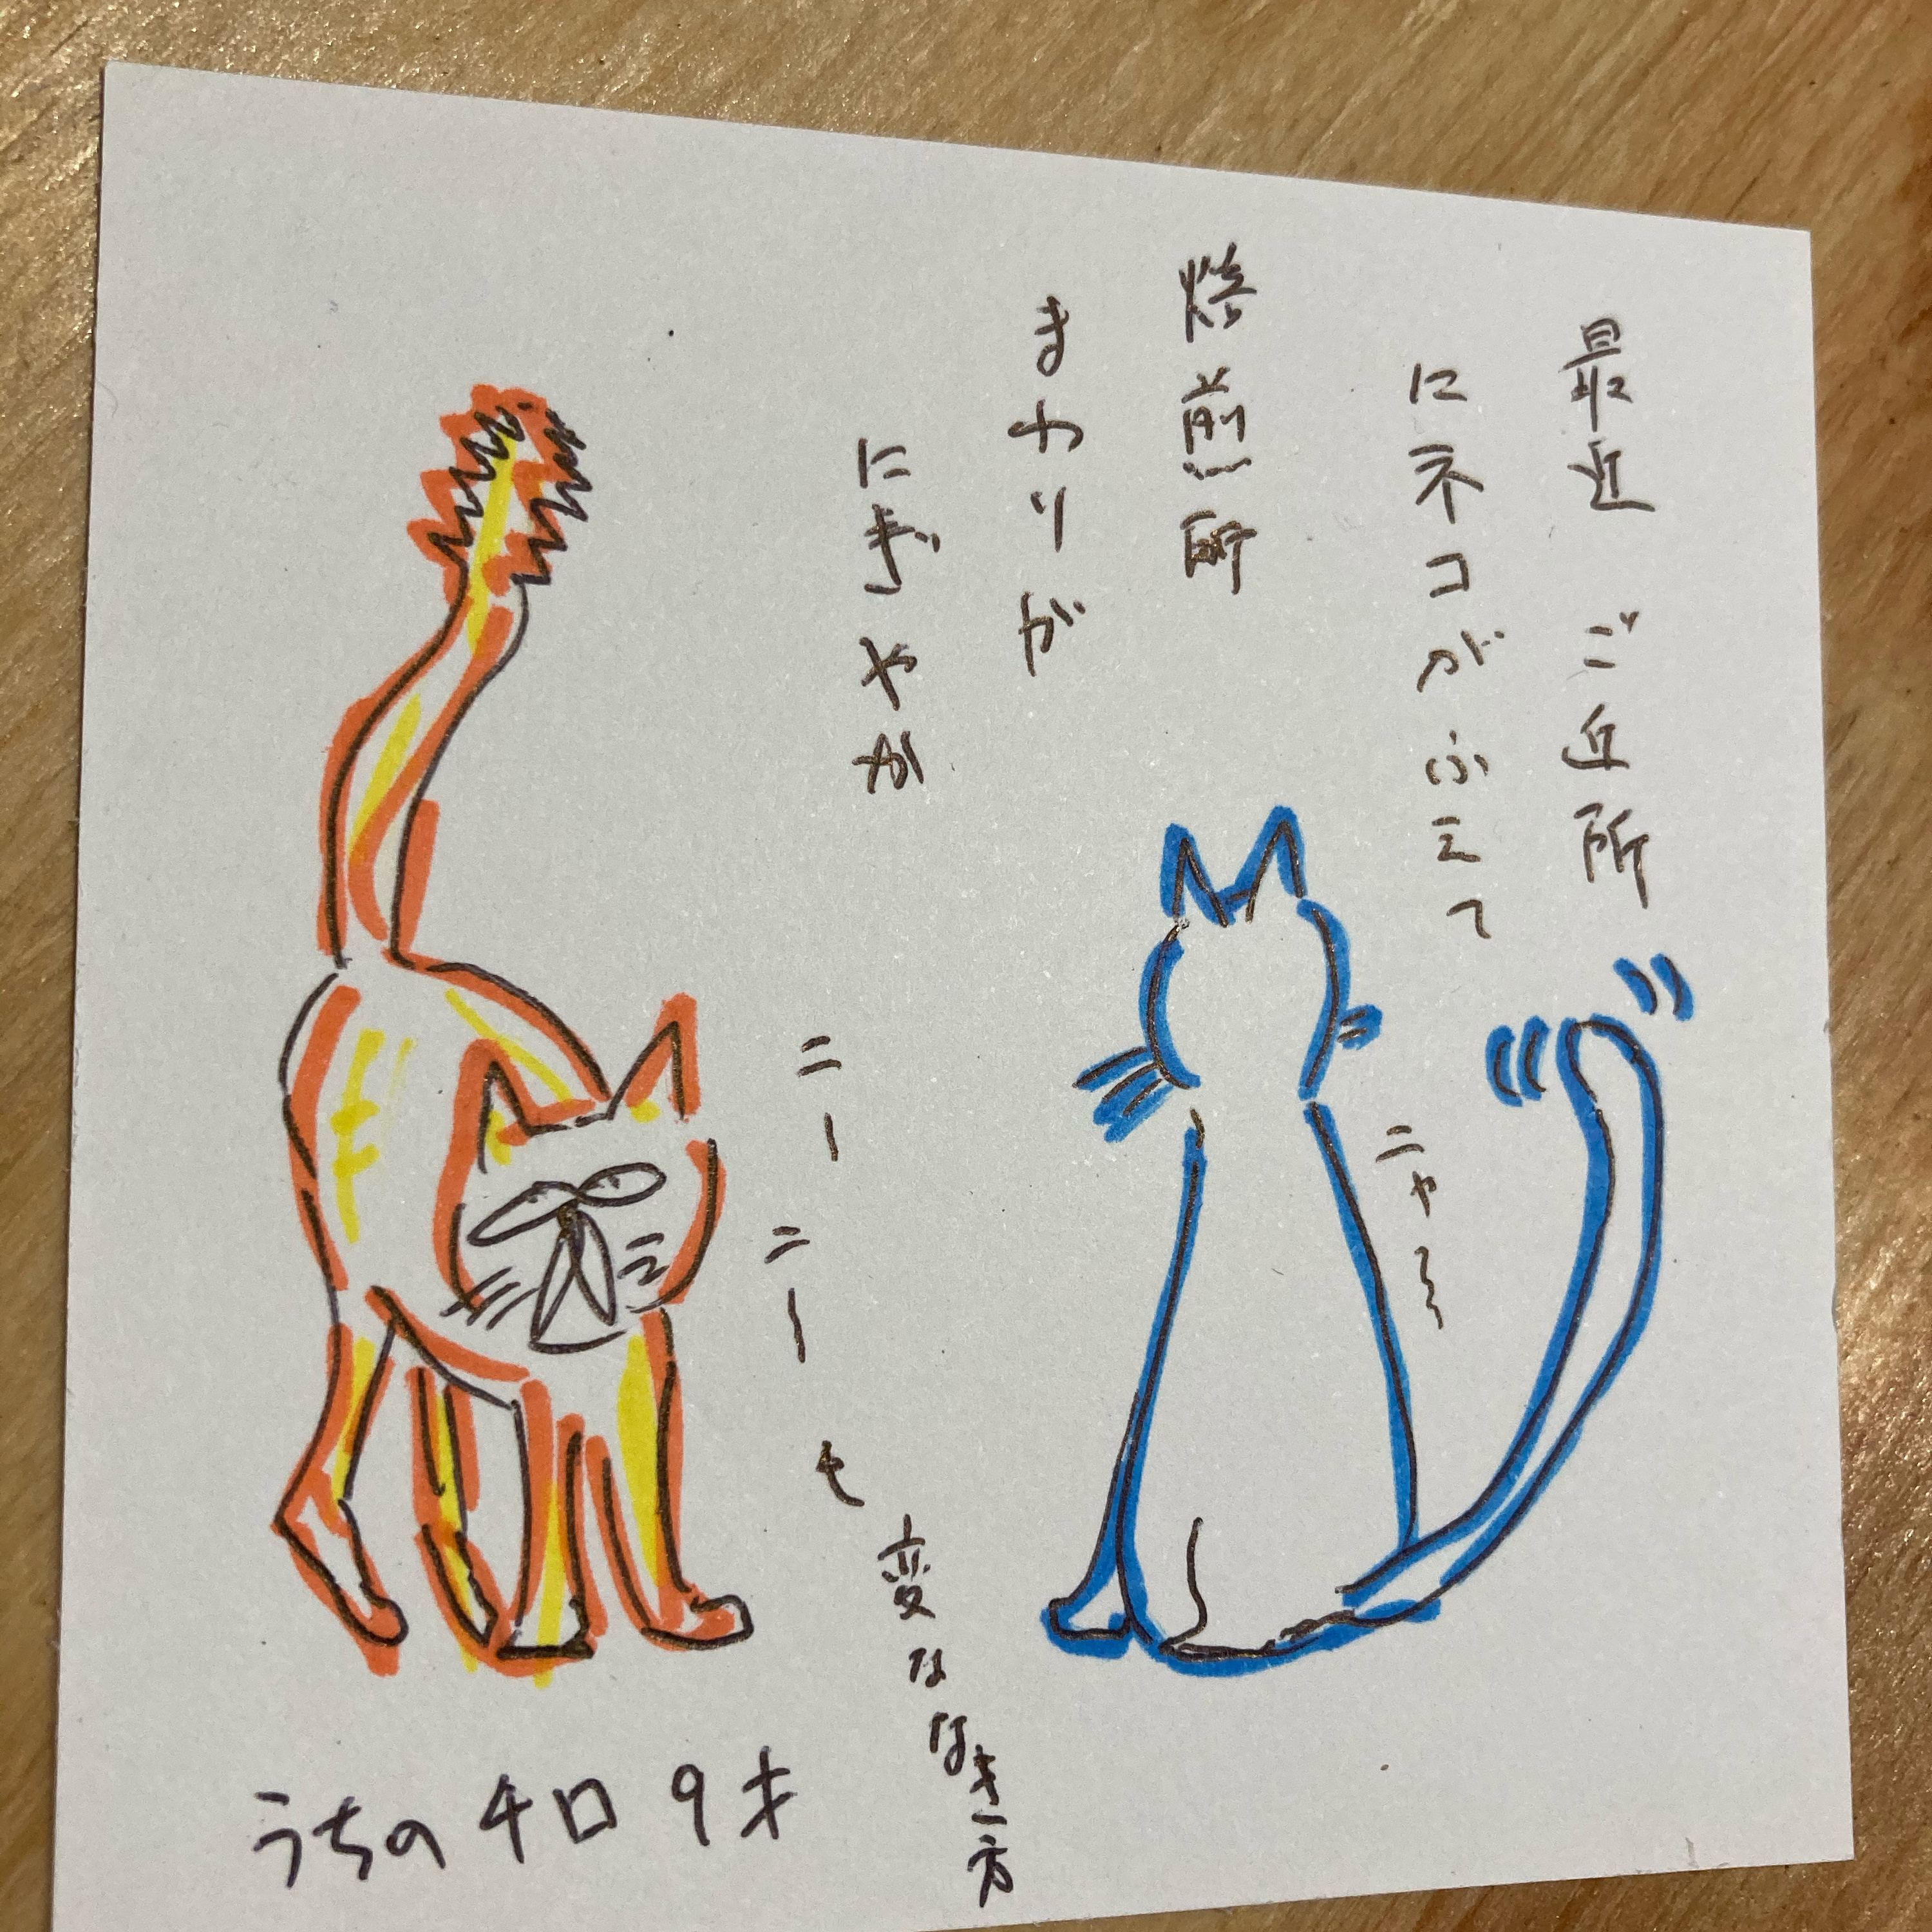 最近 ご近所
にネコがふえて
焙煎所
まわりが
にぎやか
ニャ〜
ニー
ニー
も
変ななき方
うちの チロ 9才